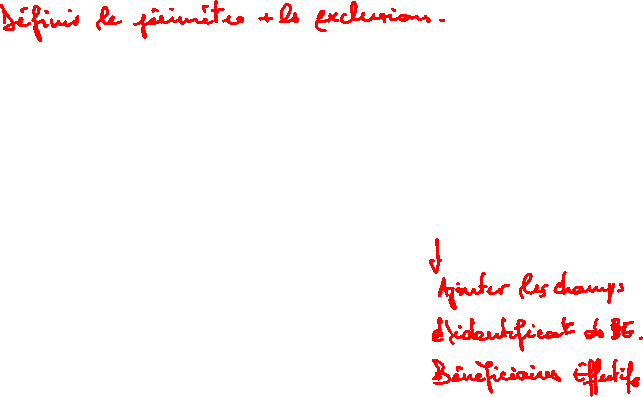 Définir le périmètre + les exclusions.
Ajouter les champs
d'identificat° des BE.
Bénéficiaires Effectifs